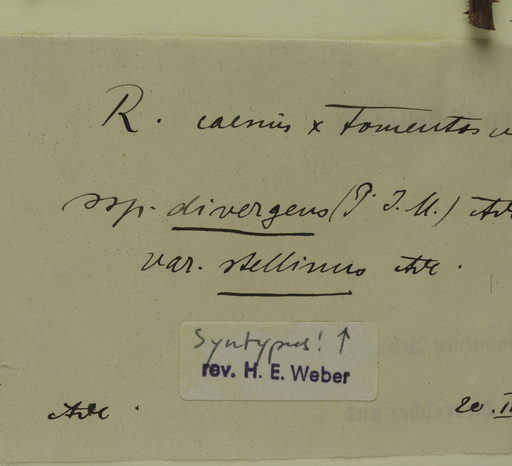 R. caesius x tomentos
ssp. divergens (P. J. M.)
var. stellinus
Syntypus! ↑
rev. H. E. Weber
20. II